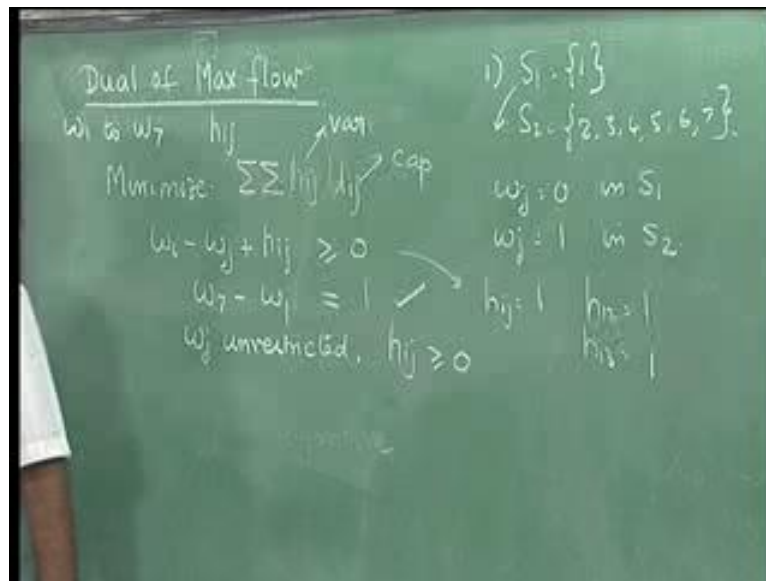 Dual of Max flow
w₁ to w₇ hij
var
Minimize ΣΣ hij uij
cap
wi - wj + hij ≥ 0
w₇ - w₁ = 1 ✓
wj unrestricted, hij ≥ 0
1) S₁ = {1}
S₂ = {2, 3, 4, 5, 6, 7}.
wj = 0 in S₁
wj = 1 in S₂
hij = 1 h₁₂ = 1
h₁₃ = 1